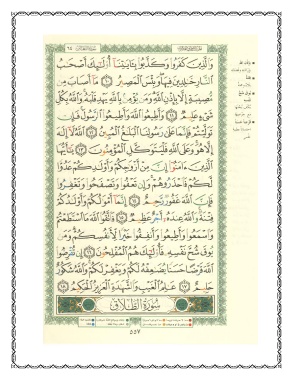 وَٱلَّذِينَ كَفَرُوا۟ وَكَذَّبُوا۟ بِـَٔايَـٰتِنَآ أُو۟لَـٰٓئِكَ أَصْحَـٰبُ
ٱلنَّارِ خَـٰلِدِينَ فِيهَا وَبِئْسَ ٱلْمَصِيرُ ١٠ مَآ أَصَابَ مِن
مُّصِيبَةٍ إِلَّا بِإِذْنِ ٱللَّهِ وَمَن يُؤْمِنۢ بِٱللَّهِ يَهْدِ قَلْبَهُۥ وَٱللَّهُ بِكُلِّ
شَىْءٍ عَلِيمٌ ١١ وَأَطِيعُوا۟ ٱللَّهَ وَأَطِيعُوا۟ ٱلرَّسُولَ فَإِن
تَوَلَّيْتُمْ فَإِنَّمَا عَلَىٰ رَسُولِنَا ٱلْبَلَـٰغُ ٱلْمُبِينُ ١٢ ٱللَّهُ لَآ إِلَـٰهَ
إِلَّا هُوَ وَعَلَى ٱللَّهِ فَلْيَتَوَكَّلِ ٱلْمُؤْمِنُونَ ١٣ يَـٰٓأَيُّهَا
ٱلَّذِينَ ءَامَنُوٓا۟ إِنَّ مِنْ أَزْوَٰجِكُمْ وَأَوْلَـٰدِكُمْ عَدُوًّا
لَّكُمْ فَٱحْذَرُوهُمْ وَإِن تَعْفُوا۟ وَتَصْفَحُوا۟ وَتَغْفِرُوا۟
فَإِنَّ ٱللَّهَ غَفُورٌ رَّحِيمٌ ١٤ إِنَّمَآ أَمْوَٰلُكُمْ وَأَوْلَـٰدُكُمْ
فِتْنَةٌ وَٱللَّهُ عِندَهُۥٓ أَجْرٌ عَظِيمٌ ١٥ فَٱتَّقُوا۟ ٱللَّهَ مَا ٱسْتَطَعْتُمْ
وَٱسْمَعُوا۟ وَأَطِيعُوا۟ وَأَنفِقُوا۟ خَيْرًا لِّأَنفُسِكُمْ وَمَن
يُوقَ شُحَّ نَفْسِهِۦ فَأُو۟لَـٰٓئِكَ هُمُ ٱلْمُفْلِحُونَ ١٦ إِن تُقْرِضُوا۟
ٱللَّهَ قَرْضًا حَسَنًا يُضَـٰعِفْهُ لَكُمْ وَيَغْفِرْ لَكُمْ وَٱللَّهُ شَكُورٌ
حَلِيمٌ ١٧ عَـٰلِمُ ٱلْغَيْبِ وَٱلشَّهَـٰدَةِ ٱلْعَزِيزُ ٱلْحَكِيمُ ١٨
سُورَةُ ٱلطَّلَاقِ
٥٥٧